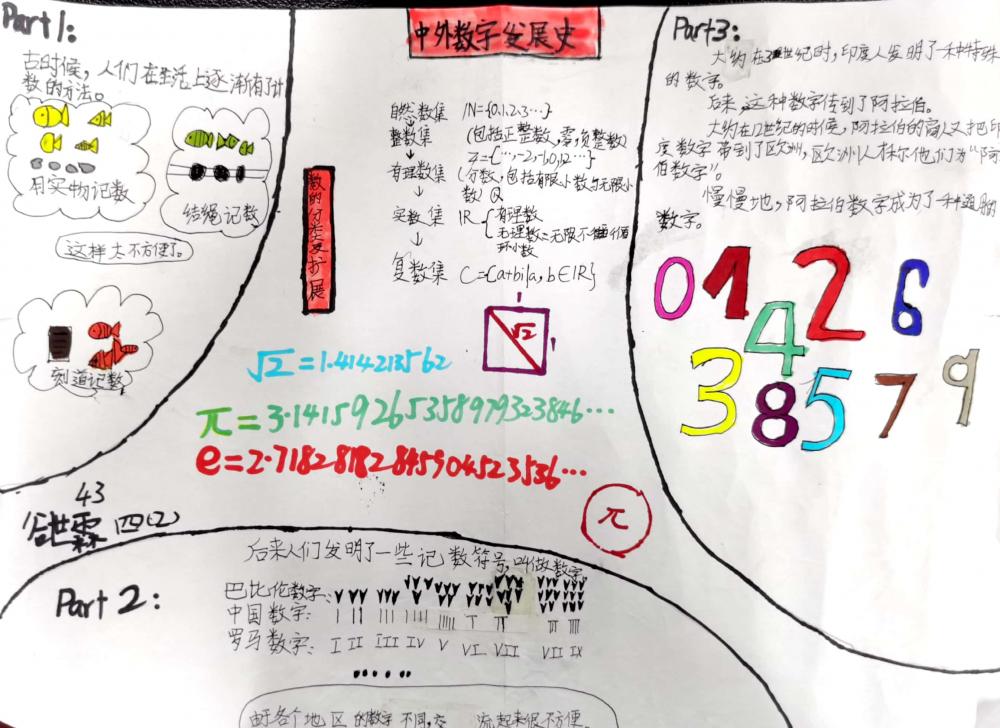 中外数字发展史
Part1:
古时候，人们在生活上逐渐有了计
数的方法。
用实物记数
结绳记数
这样太不方便了。
刻道记数
43
四(2)
数的分类及扩展
自然数集 IN={0,1,2,3…}
↓
整数集 (包括正整数,零,负整数)
↓ Z={…,-2,-1,0,1,2…}
有理数集 (分数,包括有限小数与无限小
↓ 数) Q
实数集 IR { 有理数
无理数:无限不循
↓ 环小数
复数集 C={a+bi|a,b∈IR}
1
√2
1
√2=1.414213562
π=3.14159265358979323846…
e=2.71828182845904523536…
π
Part 2:
后来人们发明了一些记数符号,叫做数字。
巴比伦数字:
中国数字:
罗马数字: I II III IV V VI VII VII IX
由于各个地区的数字不同,交 流起来很不方便
Part3:
大约在3世纪时,印度人发明了一种特殊
的数字。
后来,这种数字传到了阿拉伯。
大约在12世纪的时候,阿拉伯的商人又把印
度数字带到了欧洲,欧洲人称他们为“阿
伯数字”。
慢慢地,阿拉伯数字成为了一种通用
数字。
0 1 2 6
4
3 8 5 7 9